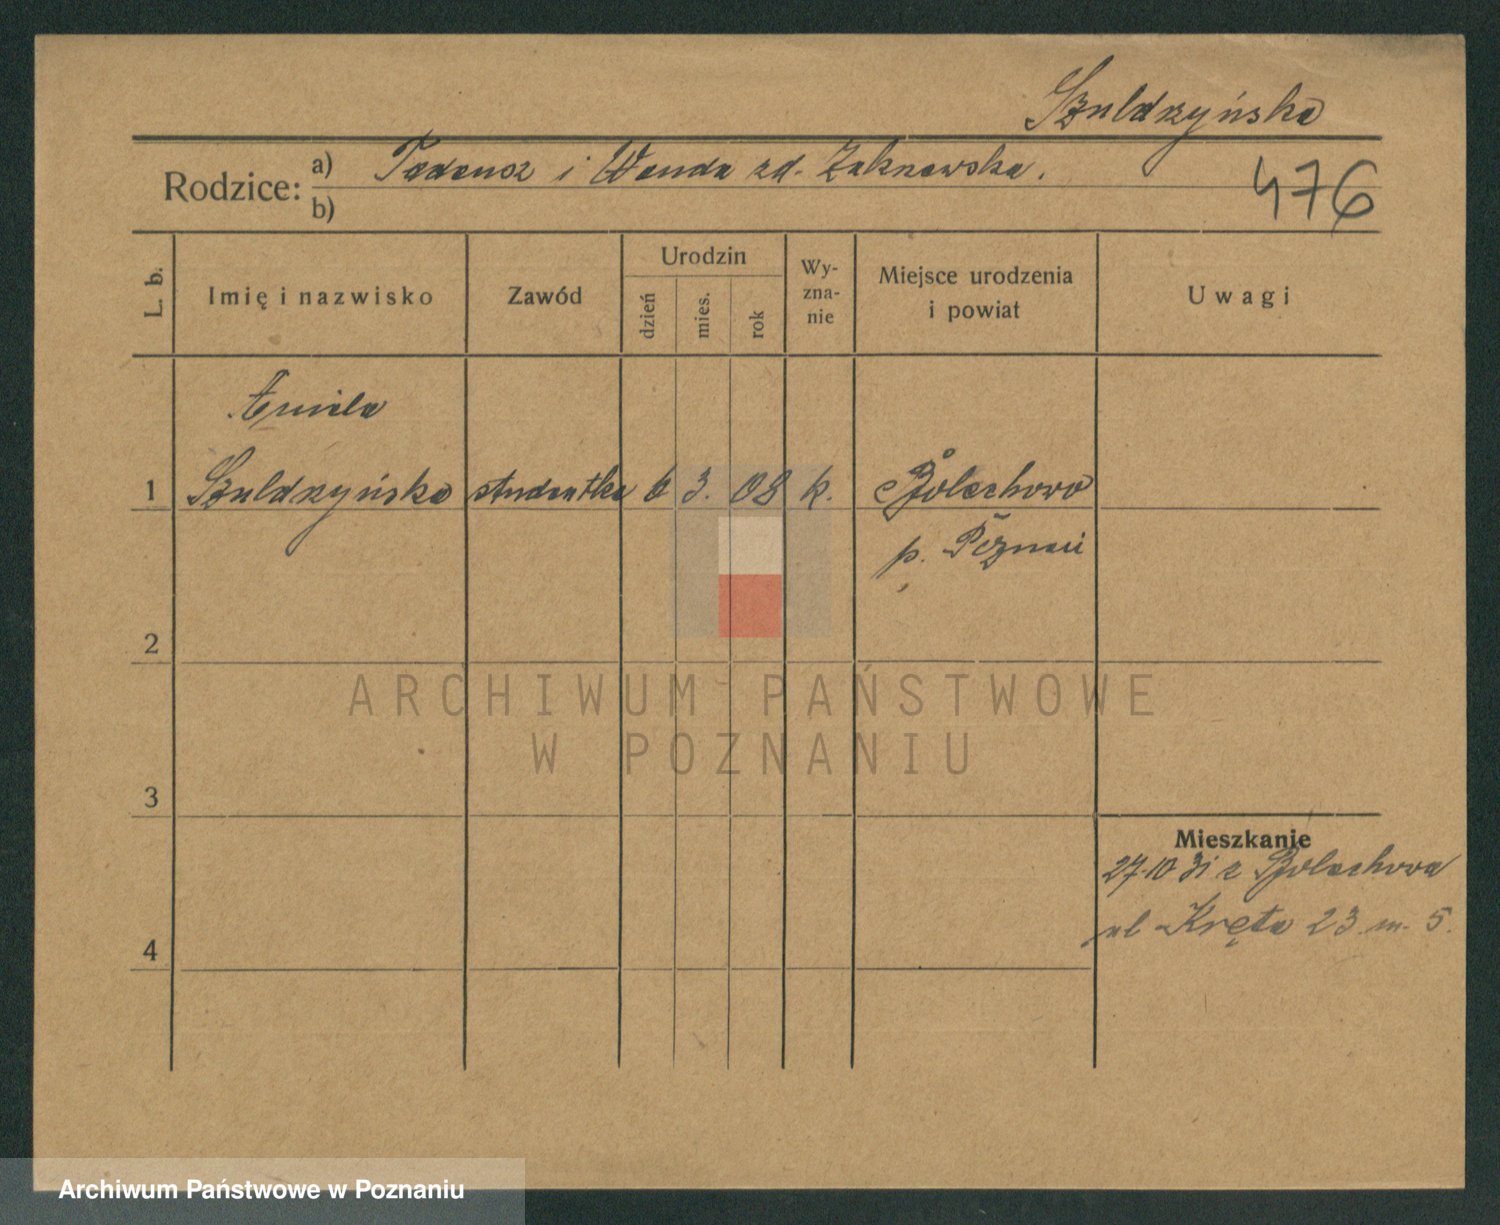 Szułdrzyńska
Rodzice: a) Tadeusz i Wanda zd.
b)
476
L. b.
Imię i nazwisko
Zawód
Urodzin
dzień
mies.
rok
Wy-
zna-
nie
Miejsce urodzenia
i powiat
Uwagi
Aniela
1 Szułdrzyńska studentka 6 3. 08 k. Bolechowo
p. Poznań
2
3
4
Mieszkanie
27.10 31 z Bolechowa
ul Kręta 23 m. 5.
ARCHIWUM PAŃSTWOWE
W POZNANIU
Archiwum Państwowe w Poznaniu